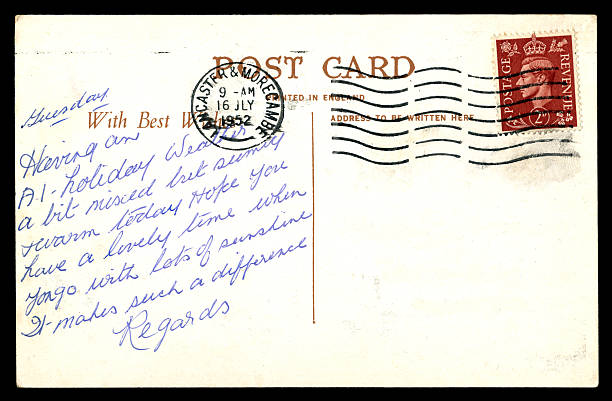 POST CARD
PRINTED IN ENGLAND
With Best Wishes
ADDRESS TO BE WRITTEN HERE
LANCASTER & MORECAMBE
9 - AM
16 JLY
1952
POSTAGE
REVENUE
2D
Tuesday
Having an
A.1. holiday Weather
a bit mixed but sunny
& warm today Hope you
have a lovely time when
you go with lots of sunshine
It makes such a difference
Regards